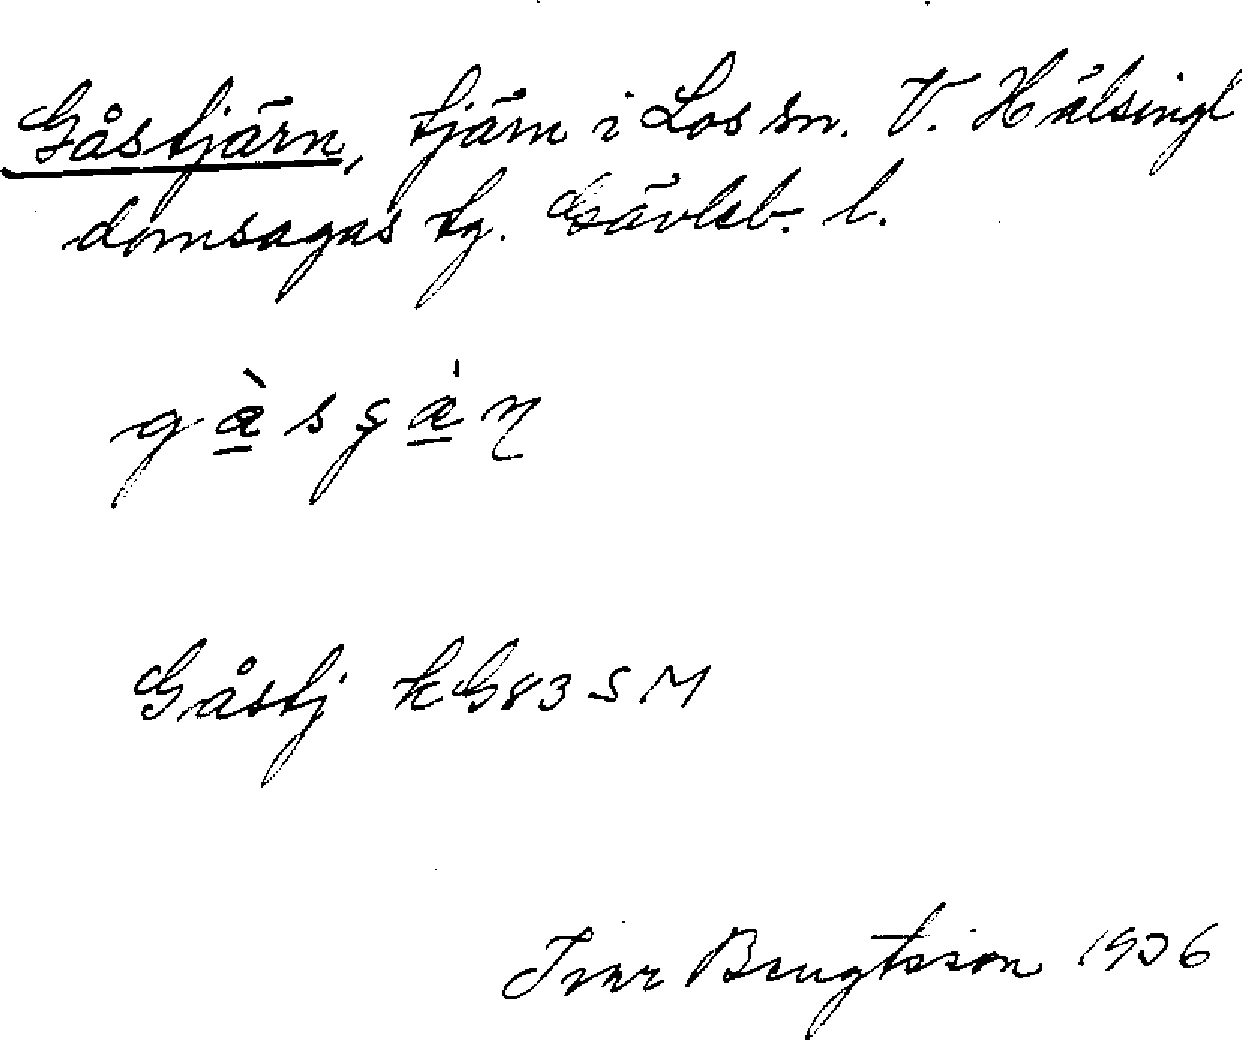 Gåstjärn, tjärn i Los sn. V. Hälsingl
domsagas tg. Gävleb. l.
Gåstj kG83SM
Ivar Bengtsson 1936